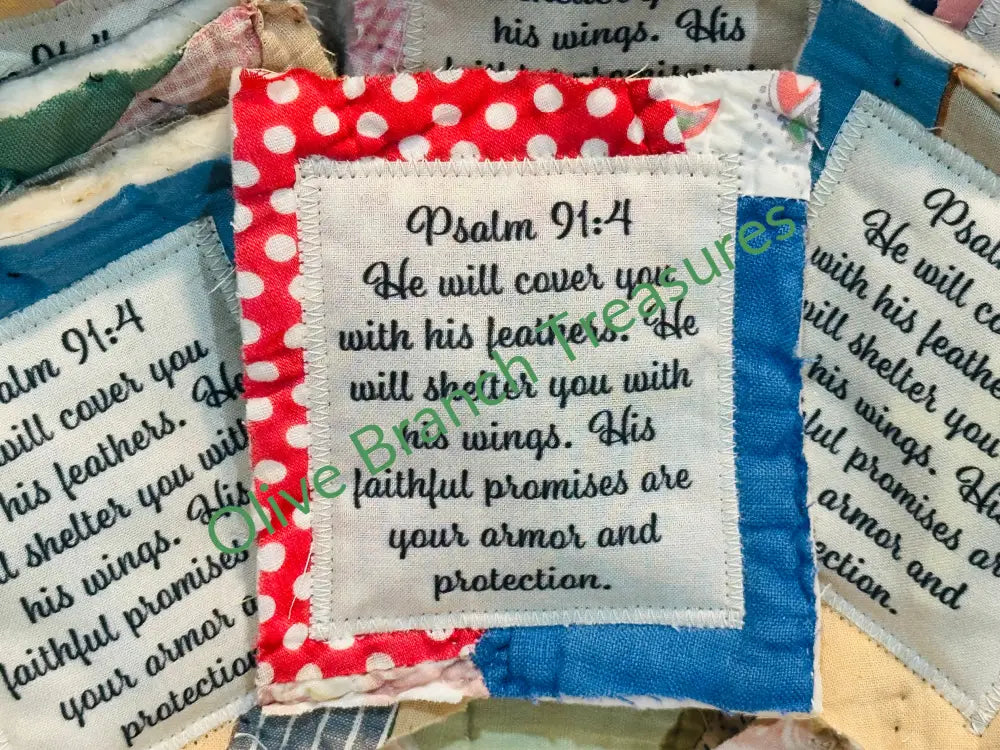 his wings. His
Psalm 91:4
He will cover you
with his feathers. He
will shelter you with
his wings. His
faithful promises are
your armor and
protection.
Olive Branch Treasures
alm 91:4
will cover you
his feathers. He
shelter you with
his wings. His
faithful promises
your armor
protection
He will
with his
will shelter you
his wings.
promises
armor and